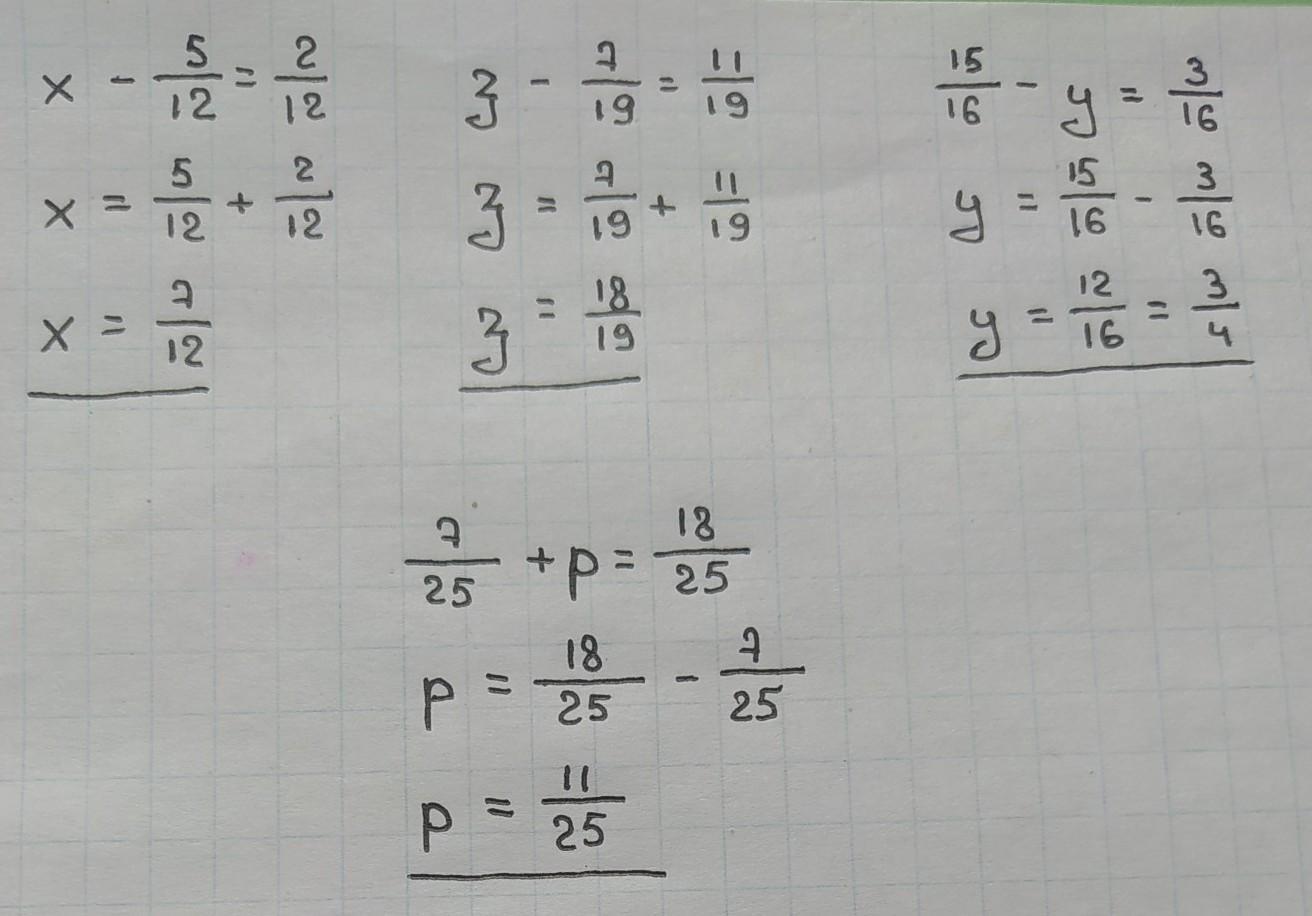 x - 5/12 = 2/12
x = 5/12 + 2/12
x = 7/12
z - 7/19 = 11/19
z = 7/19 + 11/19
z = 18/19
15/16 - y = 3/16
y = 15/16 - 3/16
y = 12/16 = 3/4
7/25 + p = 18/25
p = 18/25 - 7/25
p = 11/25